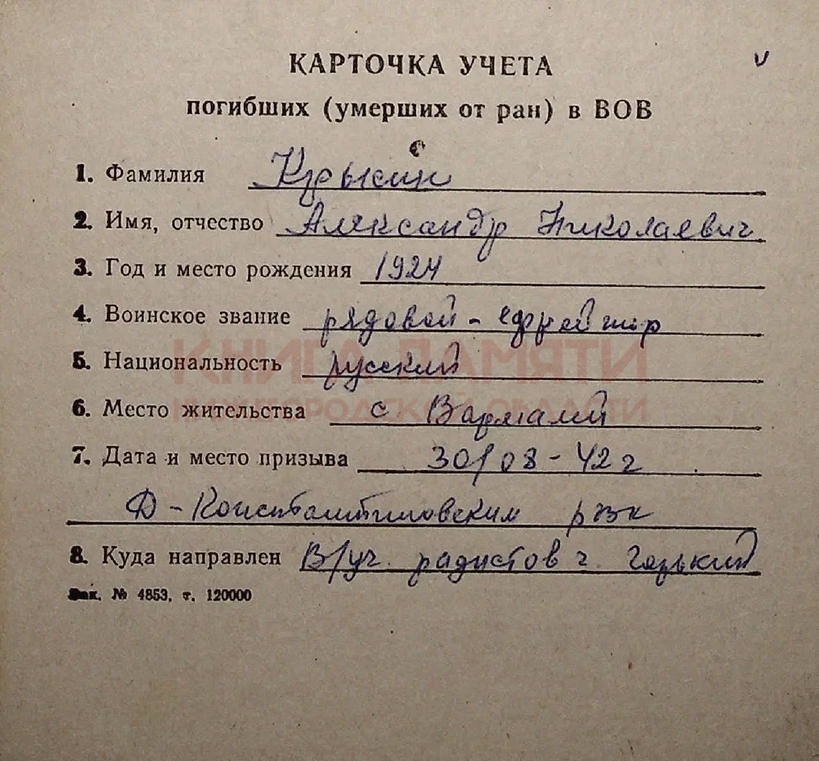 КАРТОЧКА УЧЕТА
погибших (умерших от ран) в ВОВ
1. Фамилия Крыкин
2. Имя, отчество Александр Николаевич
3. Год и место рождения 1924
4. Воинское звание рядовой - ефрейтор
5. Национальность русский
КНИГА ПАМЯТИ
НИЖЕГОРОДСКОЙ ОБЛАСТИ
6. Место жительства с. Вармалей
7. Дата и место призыва 30/08-42г
Д-Константиновским рвк
8. Куда направлен В/уч. радистов г. Горький
Зак. № 4853, т. 120000